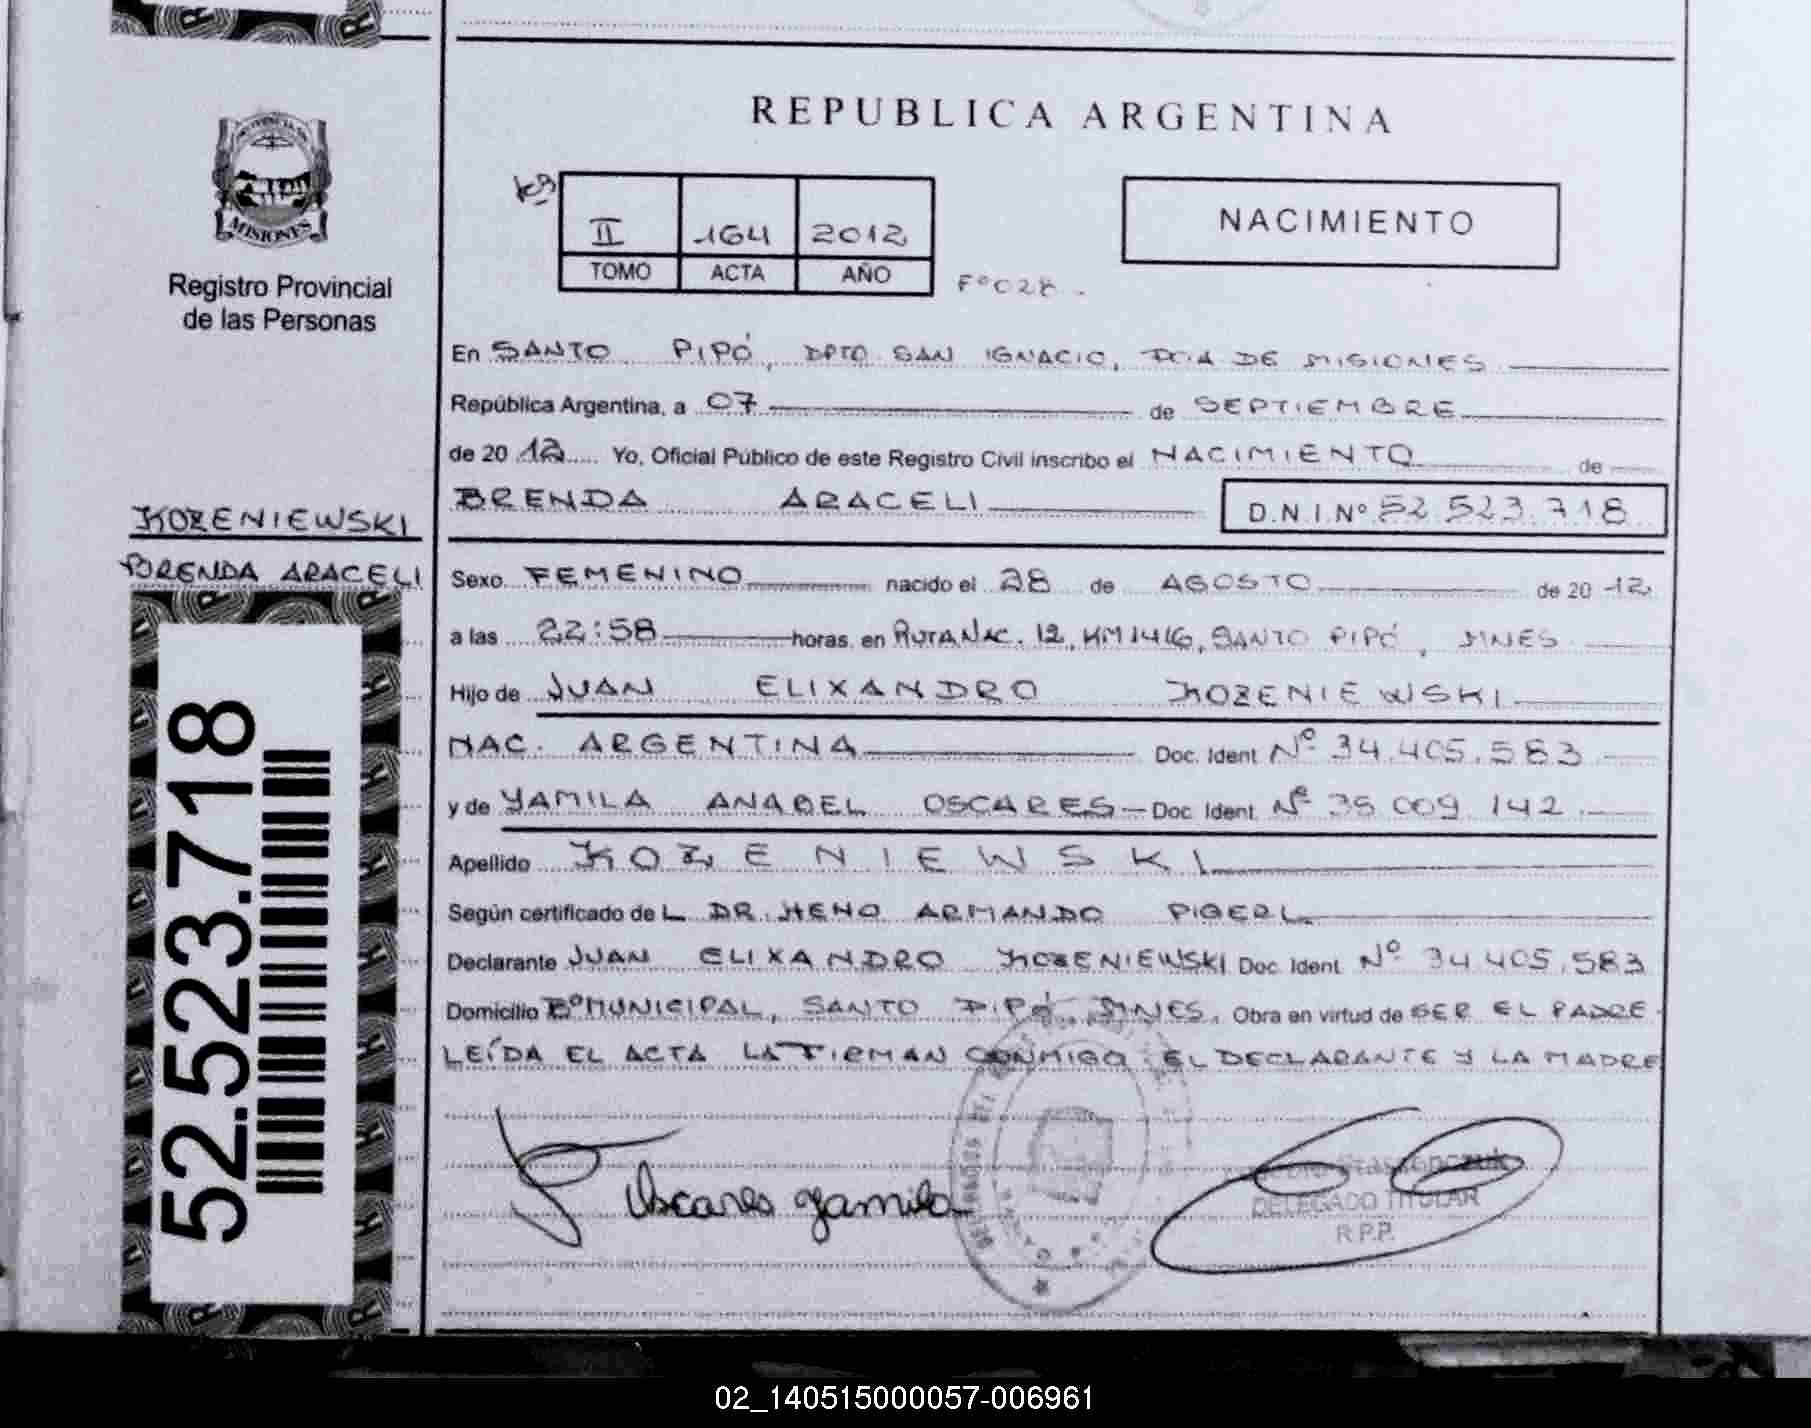 REPUBLICA ARGENTINA
MISIONES
Registro Provincial
de las Personas
II 164 2012
TOMO ACTA AÑO
Fº 028.
NACIMIENTO
En SANTO PIPÓ, DPTO SAN IGNACIO, PCIA DE MISIONES
República Argentina, a 07 de SEPTIEMBRE
de 2012 Yo, Oficial Público de este Registro Civil inscribo el NACIMIENTO de
BRENDA ARACELI D.N.I.Nº 52.523.718
KOZENIEWSKI
BRENDA ARACELI
Sexo FEMENINO nacido el 28 de AGOSTO de 2012
a las 22:58 horas, en RUTA NAC. 12, KM 1416, SANTO PIPÓ, MNES
Hijo de JUAN ELIXANDRO KOZENIEWSKI
NAC. ARGENTINA Doc. Ident Nº 34.405.583
y de YAMILA ANABEL OSCARES Doc. Ident. Nº 35 009 142
Apellido KOZENIEWSKI
Según certificado de L DR. HENO ARMANDO PIGERL
Declarante JUAN ELIXANDRO KOZENIEWSKI Doc. Ident Nº 34.405.583
Domicilio Bº MUNICIPAL, SANTO PIPÓ, MNES. Obra en virtud de SER EL PADRE.
LEÍDA EL ACTA LA FIRMAN CONMIGO EL DECLARANTE Y LA MADRE
Oscares Yamila
DELEGADO TITULAR
R.P.P.
52.523.718
02_140515000057-006961